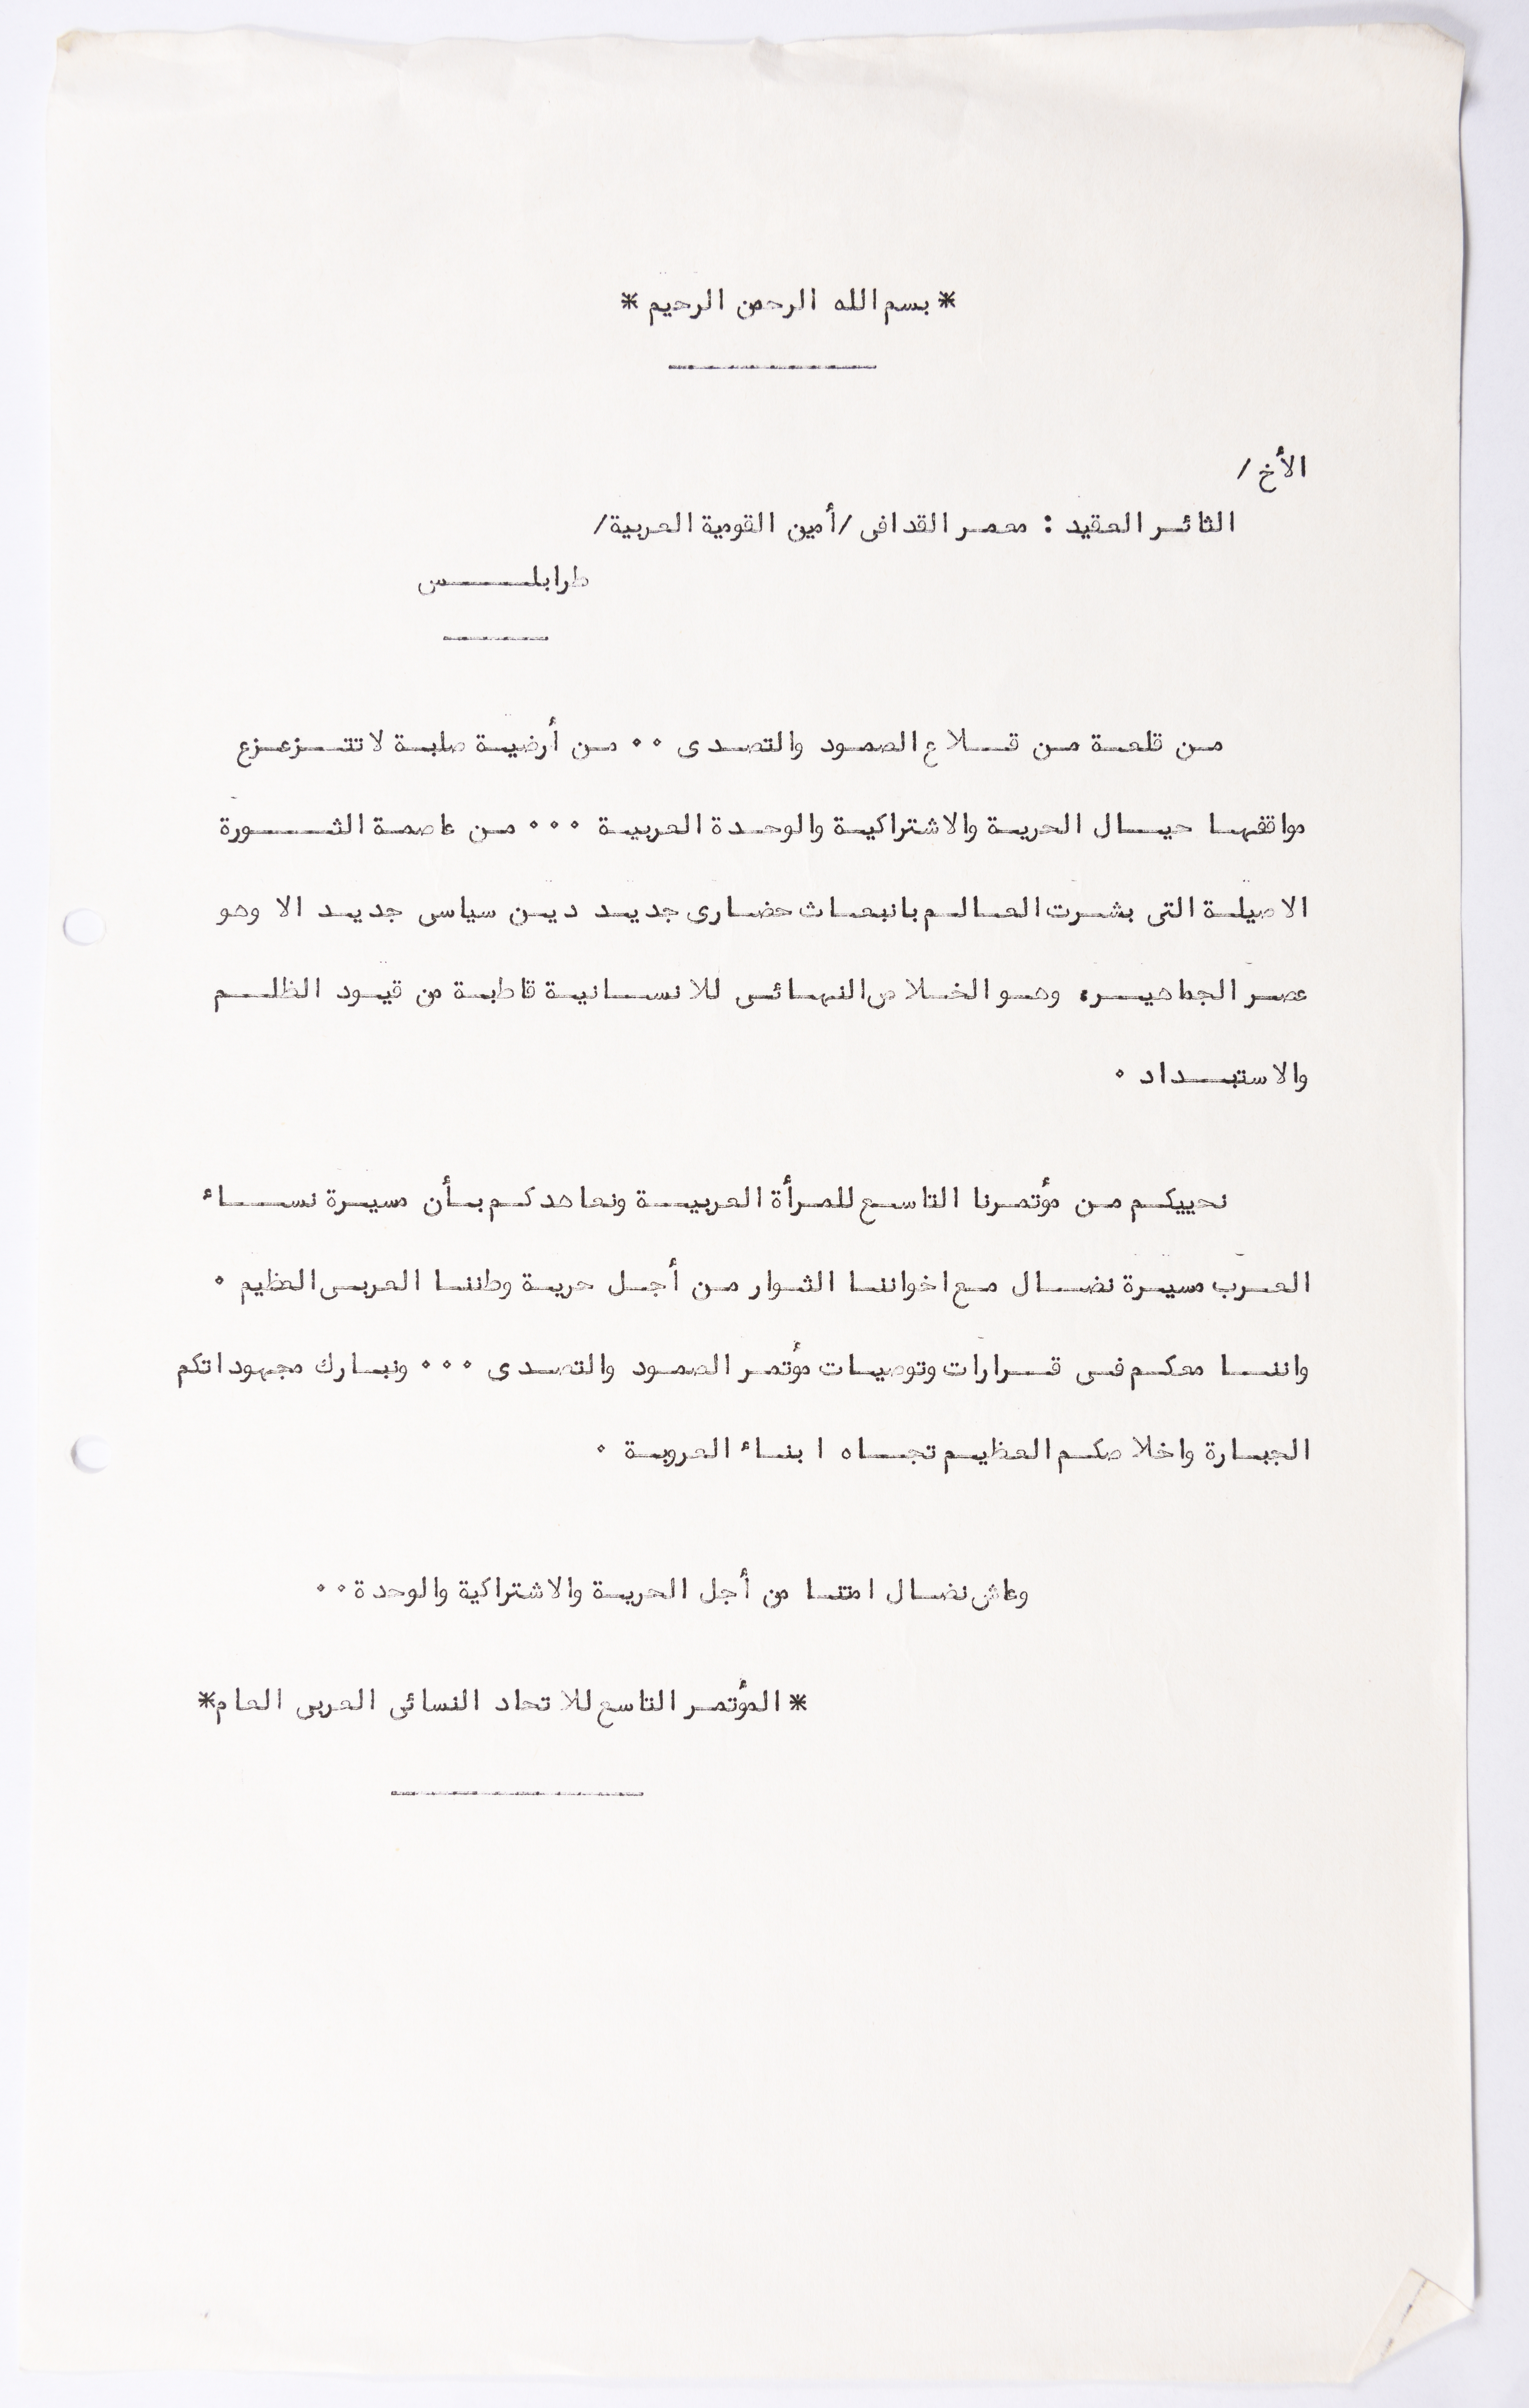 * بسم الله الرحمن الرحيم *
الأخ /
الثائر العقيد : معمر القدافى /أمين القومية العربية/
طرابلس
من قلعة من قلاع الصمود والتصدى ٠٠ من أرضية صلبة لا تتزعزع
مواقفها حيال الحرية والاشتراكية والوحدة العربية ٠٠٠ من عاصمة الثورة
الاصيلة التى بشرت العالم بانبعاث حضارى جديد دين سياسى جديد الا وهو
عصر الجماهير، وهو الخلاص النهائى للانسانية قاطبة من قيود الظلم
والاستبداد ٠
نحييكم من مؤتمرنا التاسع للمرأة العربية ونعاهدكم بأن مسيرة نساء
العرب مسيرة نضال مع اخواننا الثوار من أجل حرية وطننا العربى العظيم ٠
واننا معكم فى قرارات وتوصيات مؤتمر الصمود والتصدى ٠٠٠ ونبارك مجهوداتكم
الجبارة واخلاصكم العظيم تجاه ابناء العروبة ٠
وعاش نضال امتنا من أجل الحرية والاشتراكية والوحدة ٠٠
* المؤتمر التاسع للاتحاد النسائى العربى العام*